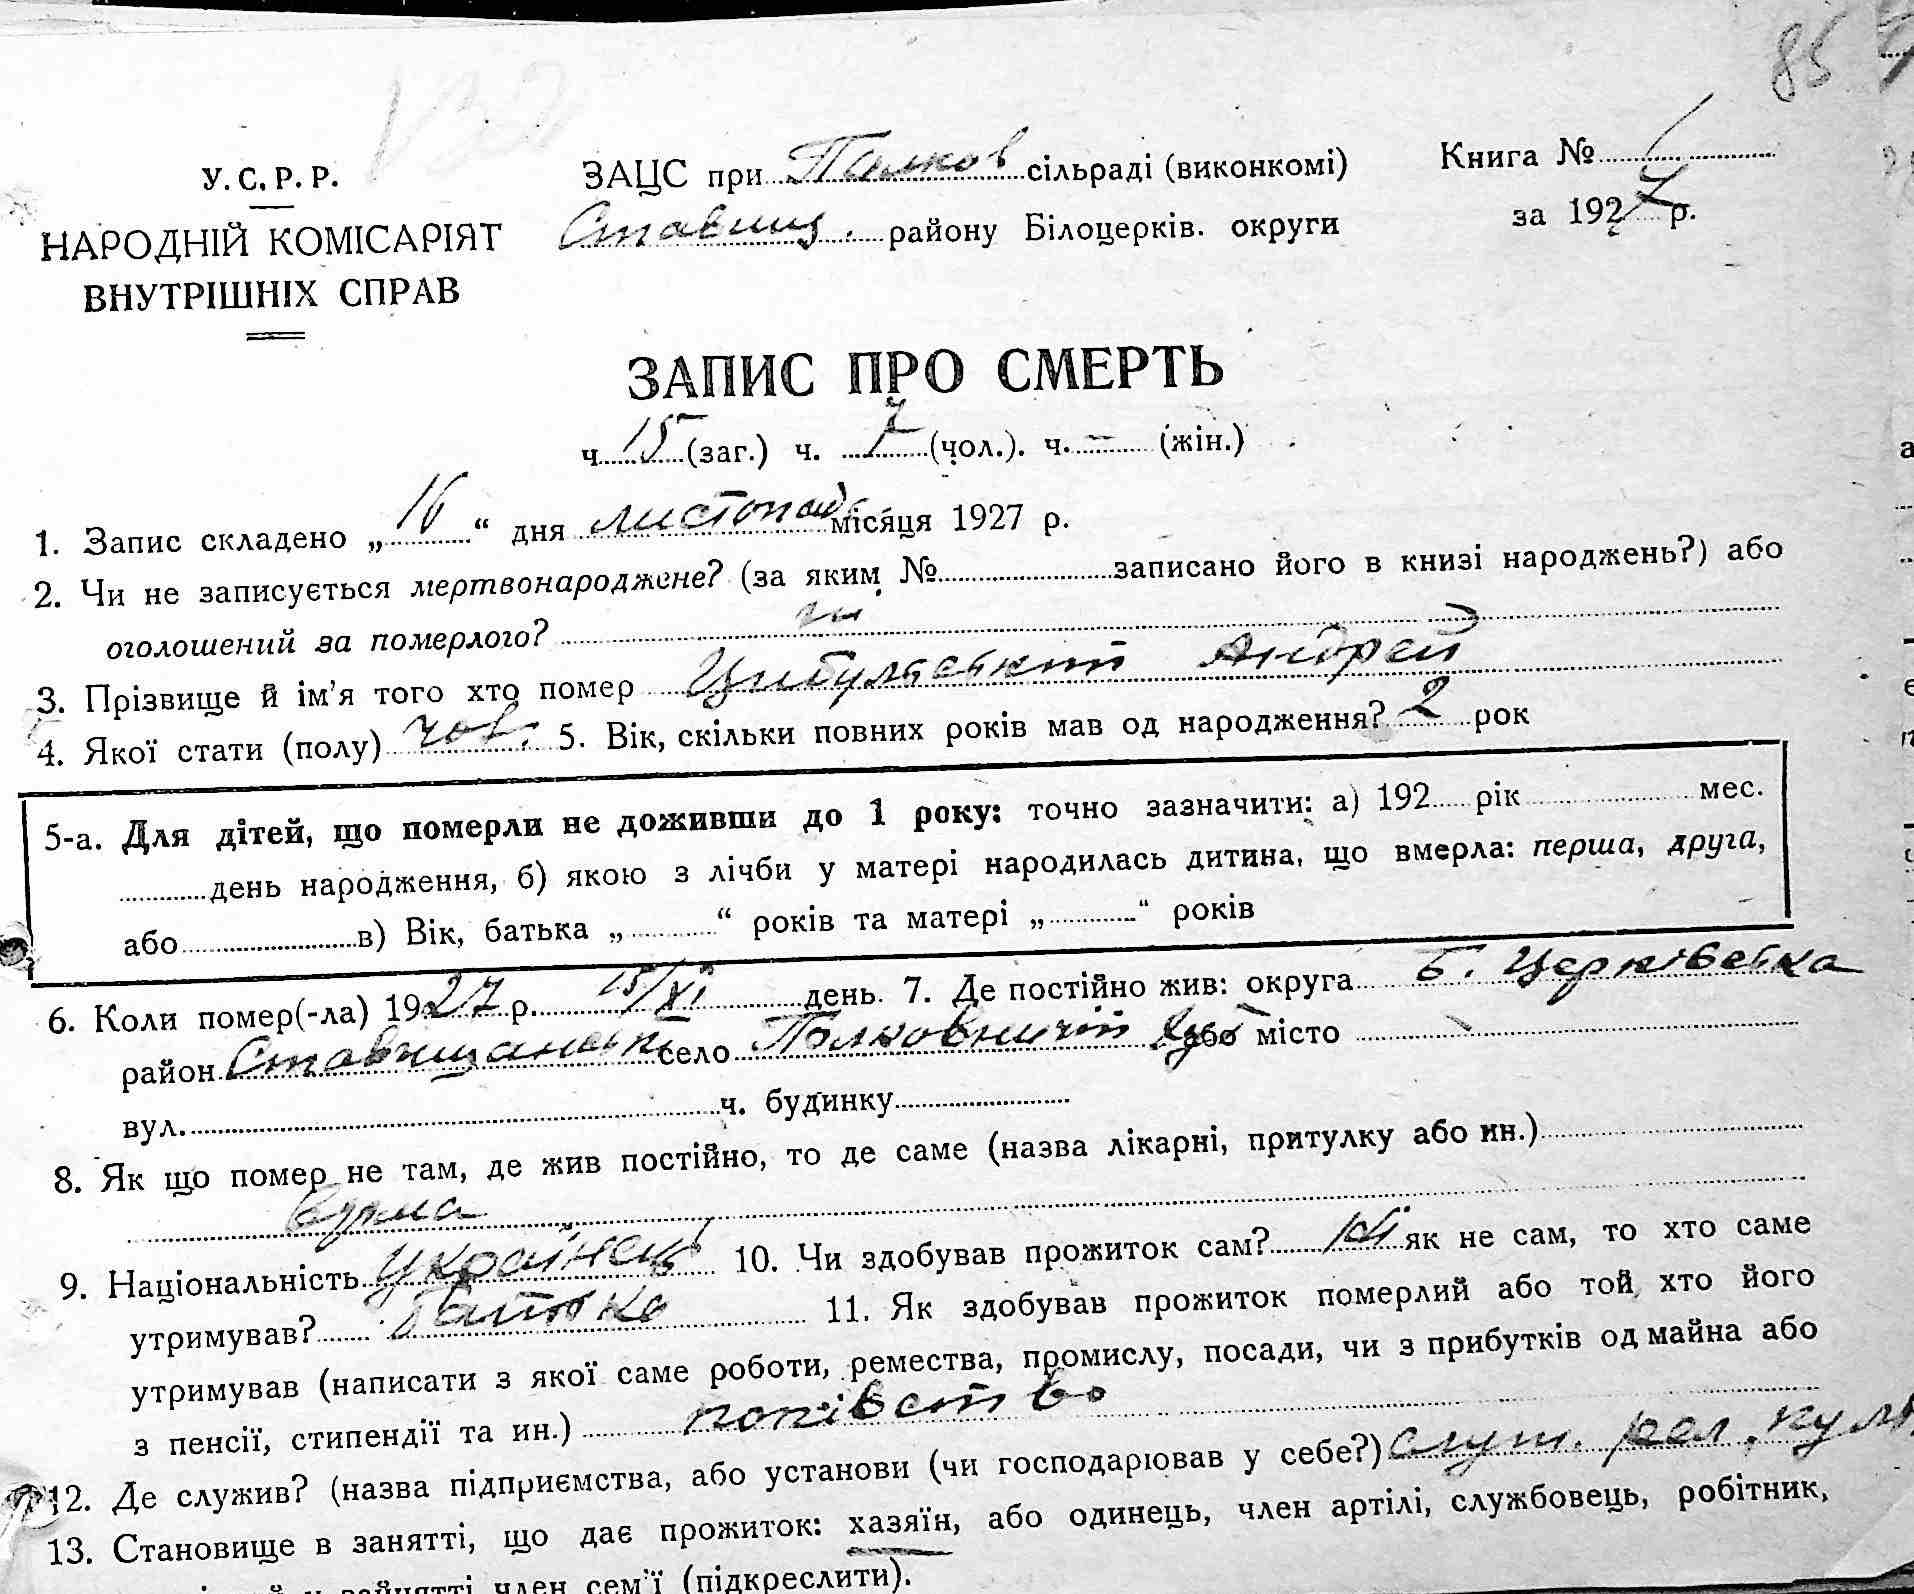 85
132
У. С. Р. Р.
НАРОДНІЙ КОМІСАРІЯТ
ВНУТРІШНІХ СПРАВ
ЗАЦС при Полков сільраді (виконкомі)
Ставищ. району Білоцерків. округи
Книга № 1
за 1927 р.
ЗАПИС ПРО СМЕРТЬ
ч. 15 (заг.) ч. 7 (чол.). ч. – (жін.)
1. Запис складено „ 16 “ дня листопада місяця 1927 р.
2. Чи не записується мертвонароджене? (за яким № записано його в книзі народжень?) або
оголошений за померлого? ні
3. Прізвище й ім’я того хто помер Цибульський Андрей
4. Якої стати (полу) чов. 5. Вік, скільки повних років мав од народження? 2 рок
5-а. Для дітей, що померли не доживши до 1 року: точно зазначити: а) 192 рік мес.
день народження, б) якою з лічби у матері народилась дитина, що вмерла: перша, друга,
або в) Вік, батька „ “ років та матері „ “ років
6. Коли помер(-ла) 1927 р. 15/XI день. 7. Де постійно жив: округа Б. Церківська
район Ставищанськ село Полковничій або місто
вул. ч. будинку
8. Як що помер не там, де жив постійно, то де саме (назва лікарні, притулку або ин.)
вдома
9. Національність українець 10. Чи здобував прожиток сам? ні як не сам, то хто саме
утримував? батько 11. Як здобував прожиток померлий або той, хто його
утримував (написати з якої саме роботи, ремества, промислу, посади, чи з прибутків од майна або
з пенсії, стипендії та ин.) попівство
12. Де служив? (назва підприємства, або установи (чи господарював у себе?) служ. рел. куль
13. Становище в занятті, що дає прожиток: хазяїн, або одинець, член артілі, службовець, робітник,
член сем’ї (підкреслити).